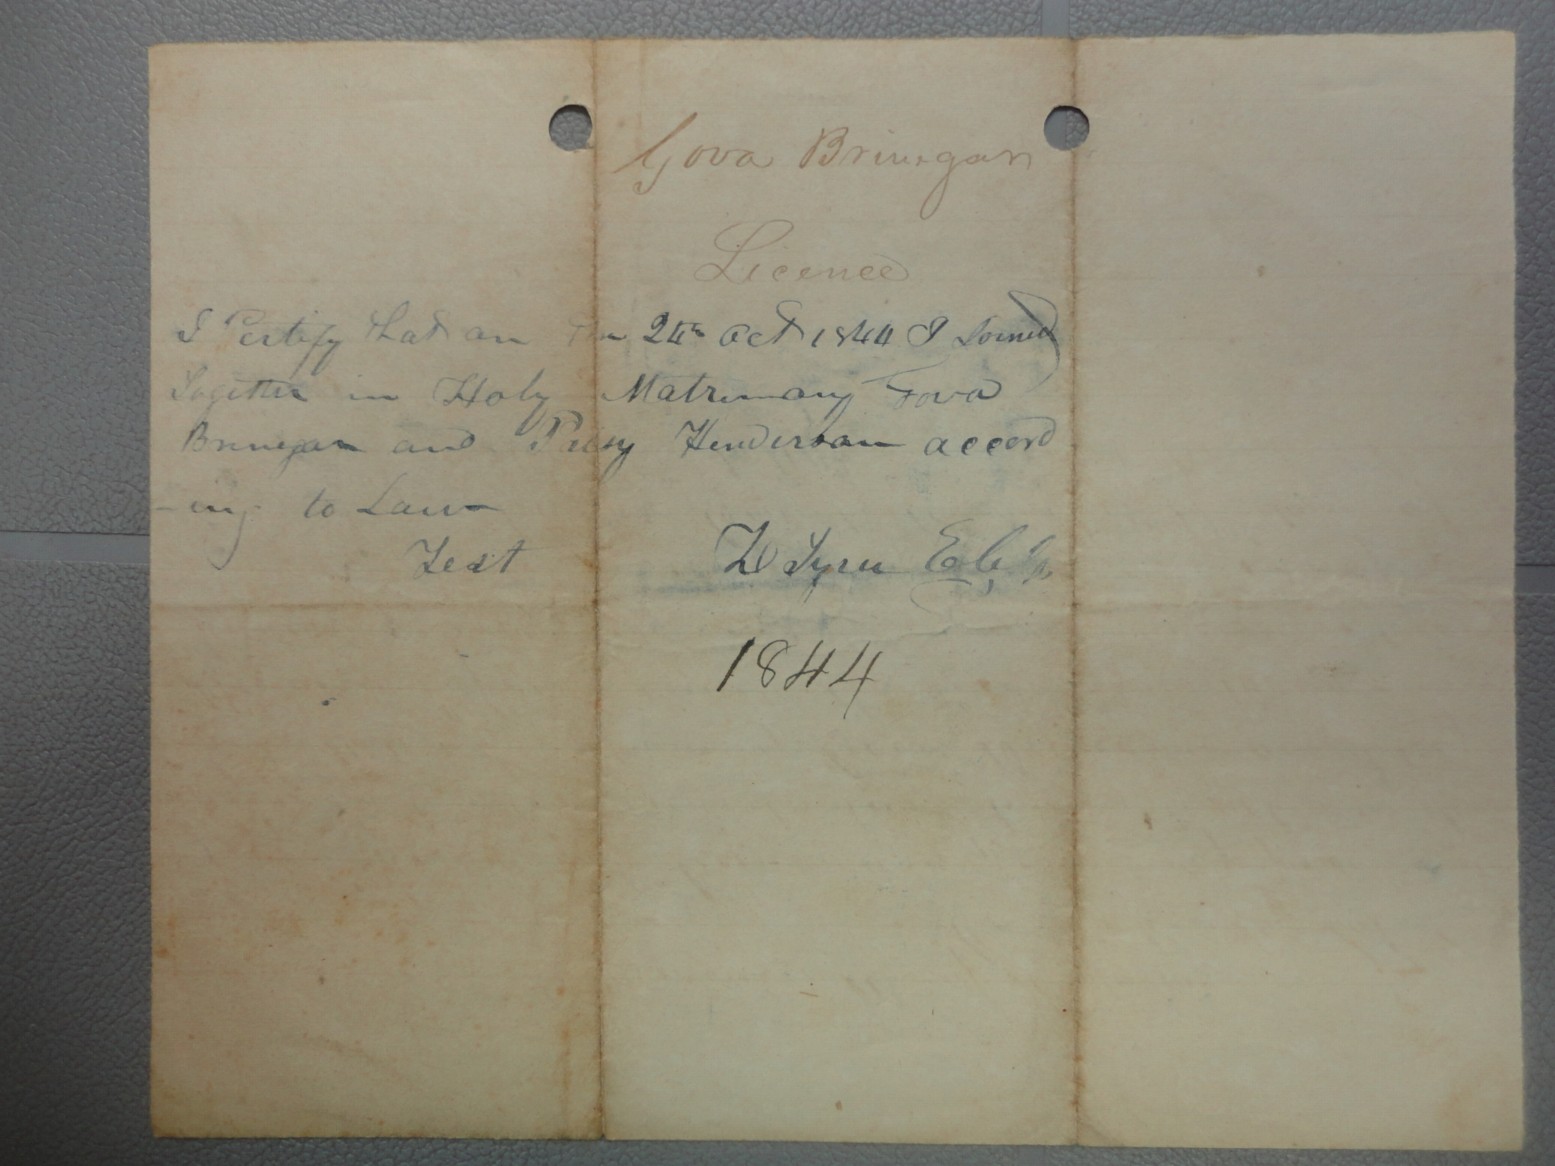 Gova Brinegan
Licence
I Certify that on the 24th Oct 1844 I Joined
Together in Holy Matrimony Gova
Brinegan and Henderson accord
-ing to Law
Test
1844